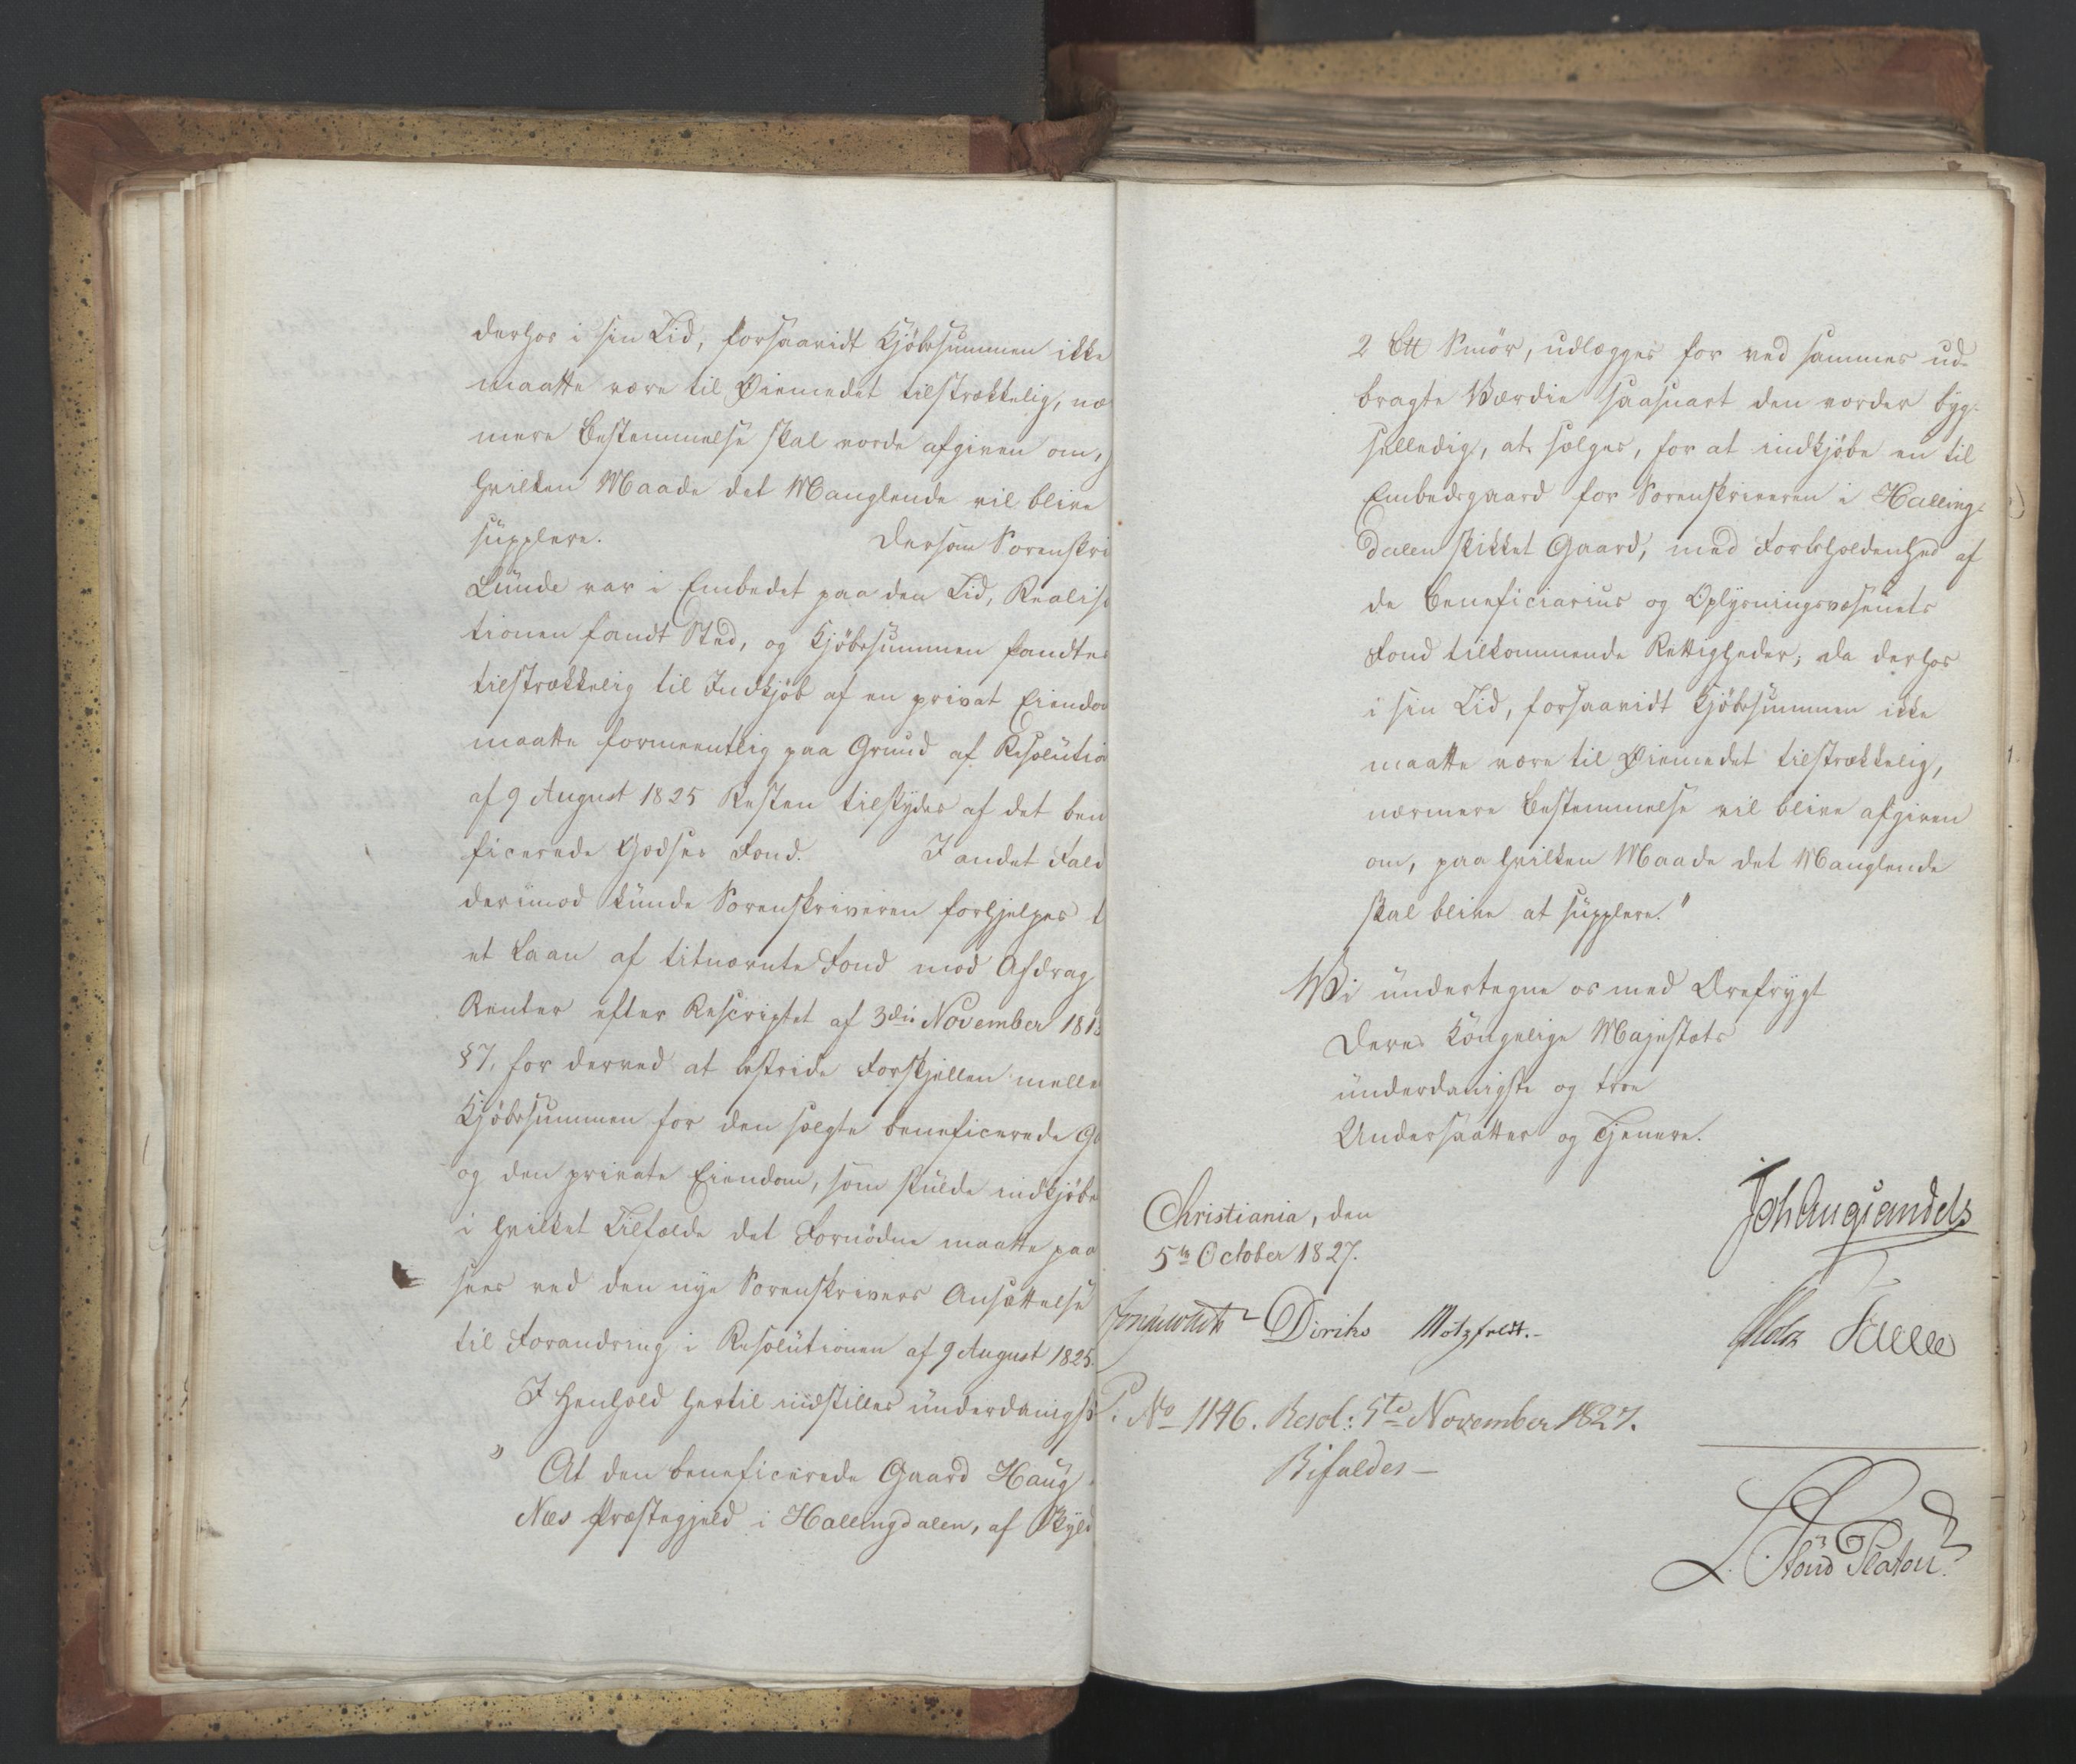 derhos i sin Tid, forsaavidt Kjöbesummen ikke
maatte være til Øiemedet tilstrækkelig, næ
mere Bestemmelse skal vorde afgiven om,
hvilken Maade det Manglende vil blive
supplere. Dersom Sorenskri
Lunde var i Embedet paa den Tid, Realisa
tionen fandt Sted, og Kjöbesummen fandtes
tilstrækkelig til Indkjöb af en privat Eiendom
maatte formeentlig paa Grund af Resolutio
af 9 August 1825 Resten tilskydes af det ben
ficerede Godses Fond. I andet Fald
derimod kunde Sorenskriveren forhjelpes t
et Laan af bitnævnte Fond mod Afdrag
Renter efter Rescriptet af 3die November 181
§7, for derved at bestride Forskjellen melle
Kjöbesummen for den solgte beneficerede G
og den private Eiendom, som skulde indkjöbe
i hvilket Tilfælde det Fornödne maatte paa
sees ved den nye Sorenskrivers Ansættelse
til Forandring i Resolutionen af 9 August 1825.
I Henhold hertil indstilles underdanigst
" At den beneficerede Gaard Haug
Næs Præstegjeld i Hallingdalen, af Skyld
2 Smör, udlægges for ved sammes ud-
bragte Værdie saasnart den vorder byg-
selledig, at sælges, for at indkjöbe en til
Embedsgaard for Sorenskriveren i Halling-
dalen skikket Gaard, med Forbeholdenhed af
de Beneficiarius og Oplysningsvæsenets
Fond tilkommende Rettigheder; da derhos
i sin Tid, forsaavidt Kjöbesummen ikke
maatte være til Øiemedet tilstrækkelig,
nærmere Bestemmelse vil blive afgiven
om, paa hvilken Maade det Manglende
skal blive at supplere."
Vi undertegne os med Ærefrygt
Deres Kongelige Majestæts
underdanigste og troe
Undersaatter og Tjenere.
Christiania, den
5te October 1827.
Joh Aug Sandels
Diriks Motzfeldt.-
Holst Fasting
P. No 1146. Resol: 5te November 1827.
Bifaldes -
L. Stoud Platou